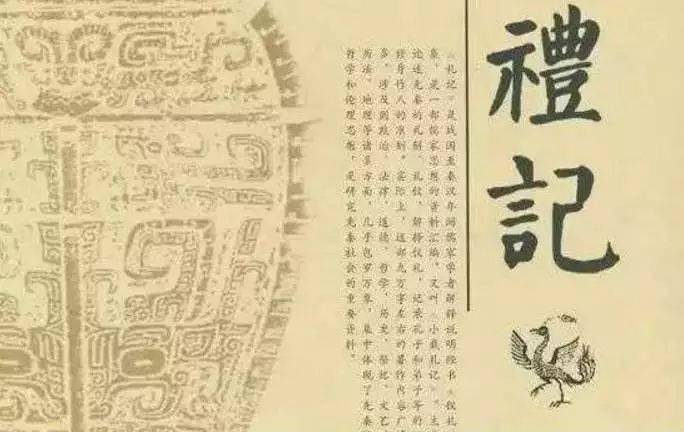 禮記
《礼记》是战国至秦汉年间儒家学者解释说明经书《仪礼
象,是一部儒家思想的资料汇编,又叫《小戴礼记》。主
论述先秦的礼制、礼仪,解释仪礼,记录孔子和弟子等的
修身作人的准则。实际上,这部九万字左右的著作内容广
多,涉及到政治、法律、道德、哲学、历史、祭祀、文艺
历法、地理等诸多方面,几乎包罗万象,集中体现了先秦
哲学和伦理思想,是研究先秦社会的重要资料。